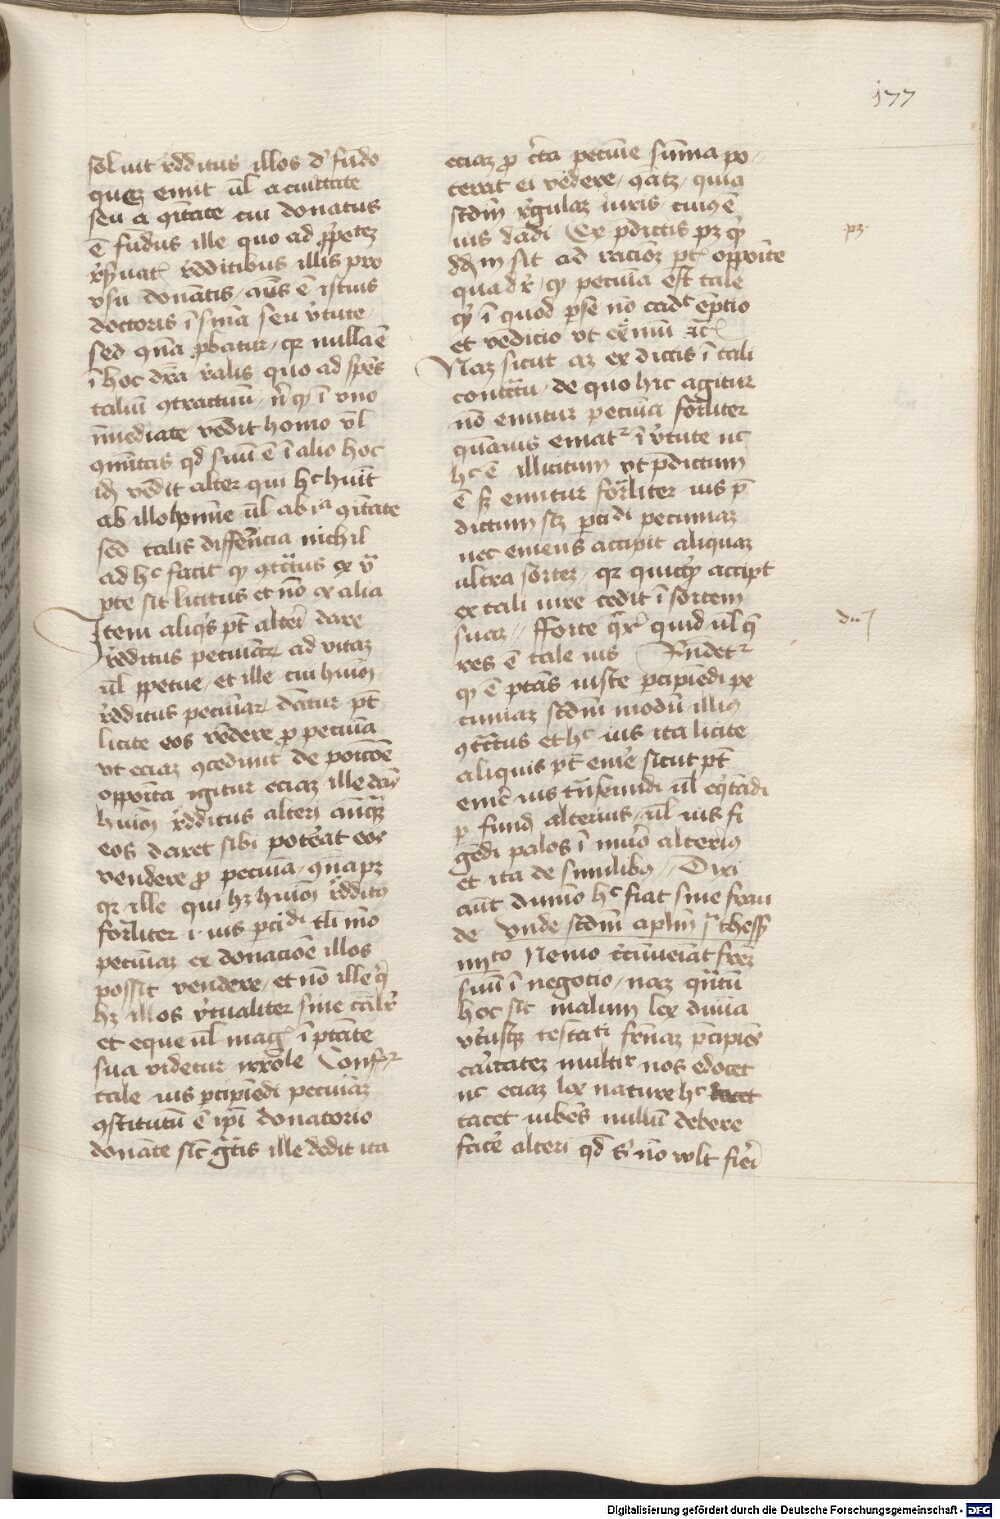 177
soluit rdditus illos d' fundo
quez emit ul a ciuitate
seu a qitate cui donatus
ē fundus ille quo ad prpetez
rseruat rdditibus illis pro
usu donātis, aus ē istius
doctoris ī sma seu vtute,
sed qña pbatur, qr nulla ē
ī hoc dra ralis quo ad spēs
taliū qtractuū, nͥ qͥ ī uno
īmediate vēdit homo ul
qmittis qd suū ē ī alio hoc
id vēdit alter qui hc huit
ab illo homine ul ab ia qitate
sed talis differēcia nichil
ad hc facit qͥ qtctus ex v
pte sit licitus et nō ex alia
Item aliqs pt alteri dare
redditus pecuniar ad vitaz
ul ppetue, et ille cui huiōi
rdditus pecuniar dantur pt
licite eos vēdere pro pecunia
ut eciaz qcedunt de poicōe
opposita igitur eciaz ille dans
huiōi rdditus alteri anqz
eos daret sibi poterat eos
vendere pro pecunia, qña pz
qr ille qui hz huiōi rdditus
forliter i. ius pcidi tli mo
pecuniaz ex donacioē illos
possit vendere, et nō ille q
hz illos vtualiter sine tali
et eque ul mag ī ptāte
sua videtur irrōle Confr
tale ius pcipiēdi pecuniaz
qstitutū ē ipi donatorio
donāte sic gtis ille dedit ita
eciaz pro certa pecunie summa po
terat ei vēdere, qatz, quia
scdm regulaz iuris, cuius ē
ius dadi Ex pdictis pz qͥ
ddm sit ad racōez pt opposite
quadr, qͥ pecunia est tale
qͥ ī quod pse nō cadt eptio
et vēdicio ut exnimū etc
Naz sicut az ex dictis ī tali
contctu, de quo hic agitur
nō emitur pecunia forliter
quāuis emat ī vtute nc
hc ē illicitum ut pdictum
ē sz emitur forliter ius p
dictum sz pcidi pecuniaz
nec emens accipit aliquaz
ultra sortez, qr quicqͥ accipt
ex tali iure cedit ī sortem
suaz // fforte qr quid ul q
res ē tale ius Rndetr
qͥ ē ptas iuste pcipiēdi pe
cuniaz scdm modū illius
qtctus et hc ius ita licite
aliquis pt emē sicut pt
emē ius trāseundi ul eqitādi
p fund alterius, ul ius fi
gēdi palos ī muro alterius
et ita de similibus // Dixi
aut dummo hc fiat sine frau
de Unde scdm aplm i thess
iiiito Nemo ccūueiat frēz
suū ī negotio, naz qntū
hoc sit malum lex diuia
utriusqz testati frnaz pcipiēs
caritatez multi nos edocet
nc eciaz lex nature hc docet
tacet iubēs nullū debere
facē alteri qd si nō wlt fieri
pz
Digitalisierung gefördert durch die Deutsche Forschungsgemeinschaft - DFG